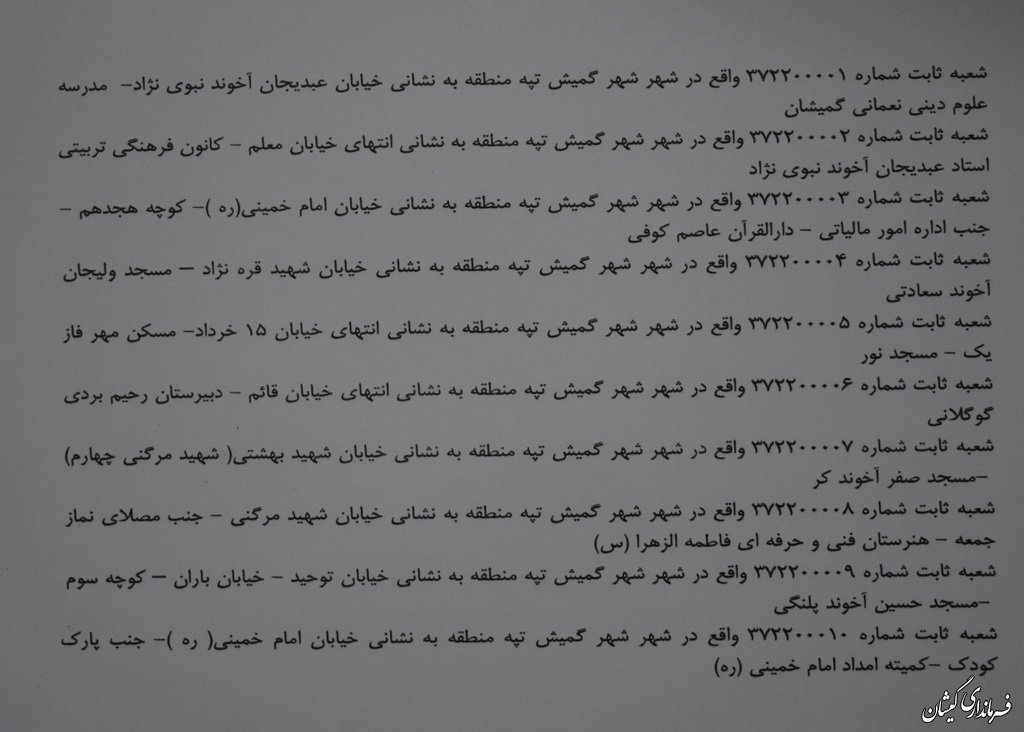 شعبه ثابت شماره ۳۷۲۲۰۰۰۰۱ واقع در شهر شهر گمیش تپه منطقه به نشانی خیابان عبدیجان آخوند نبوی نژاد– مدرسه
علوم دینی نعمانی گمیشان
شعبه ثابت شماره ۳۷۲۲۰۰۰۰۲ واقع در شهر شهر گمیش تپه منطقه به نشانی انتهای خیابان معلم – کانون فرهنگی تربیتی
استاد عبدیجان آخوند نبوی نژاد
شعبه ثابت شماره ۳۷۲۲۰۰۰۰۳ واقع در شهر شهر گمیش تپه منطقه به نشانی خیابان امام خمینی(ره )– کوچه هجدهم –
جنب اداره امور مالیاتی – دارالقرآن عاصم کوفی
شعبه ثابت شماره ۳۷۲۲۰۰۰۰۴ واقع در شهر شهر گمیش تپه منطقه به نشانی خیابان شهید قره نژاد – مسجد ولیجان
آخوند سعادتی
شعبه ثابت شماره ۳۷۲۲۰۰۰۰۵ واقع در شهر شهر گمیش تپه منطقه به نشانی انتهای خیابان ۱۵ خرداد– مسکن مهر فاز
یک – مسجد نور
شعبه ثابت شماره ۳۷۲۲۰۰۰۰۶ واقع در شهر شهر گمیش تپه منطقه به نشانی انتهای خیابان قائم – دبیرستان رحیم بردی
گوگلانی
شعبه ثابت شماره ۳۷۲۲۰۰۰۰۷ واقع در شهر شهر گمیش تپه منطقه به نشانی خیابان شهید بهشتی( شهید مرگنی چهارم)
–مسجد صفر آخوند کر
شعبه ثابت شماره ۳۷۲۲۰۰۰۰۸ واقع در شهر شهر گمیش تپه منطقه به نشانی خیابان شهید مرگنی – جنب مصلای نماز
جمعه – هنرستان فنی و حرفه ای فاطمه الزهرا (س)
شعبه ثابت شماره ۳۷۲۲۰۰۰۰۹ واقع در شهر شهر گمیش تپه منطقه به نشانی خیابان توحید – خیابان باران – کوچه سوم
–مسجد حسین آخوند پلنگی
شعبه ثابت شماره ۳۷۲۲۰۰۰۱۰ واقع در شهر شهر گمیش تپه منطقه به نشانی خیابان امام خمینی( ره )– جنب پارک
کودک –کمیته امداد امام خمینی (ره)
فرمانداری گمیشان